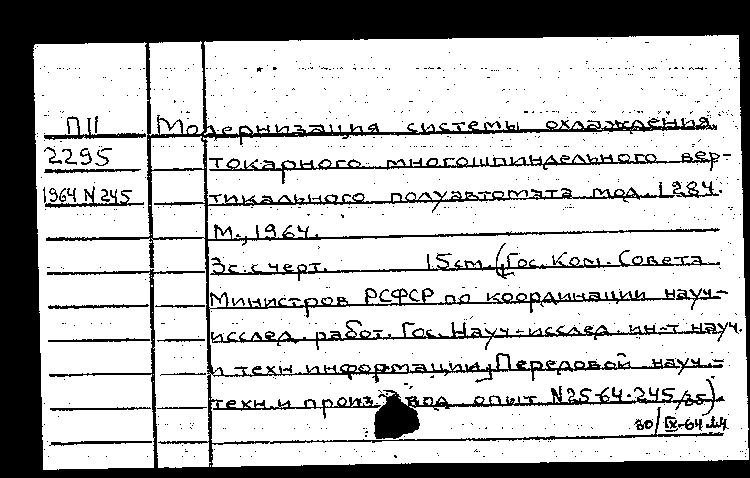 П11 Модернизация системы охлаждения
2295 токарного многошпиндельного вер-
1964 N 245 тикального полуавтомата мод. 1284.
М., 1964.
3с. с черт. 15см. (Гос. Ком. Совета
Министров РСФСР по координации науч-
исслед. работ. Гос. Науч-исслед. ин-т науч.
и техн. информации. Передовой науч.-
техн. и произвад. опыт N25-64-245/35).
30/IX-64